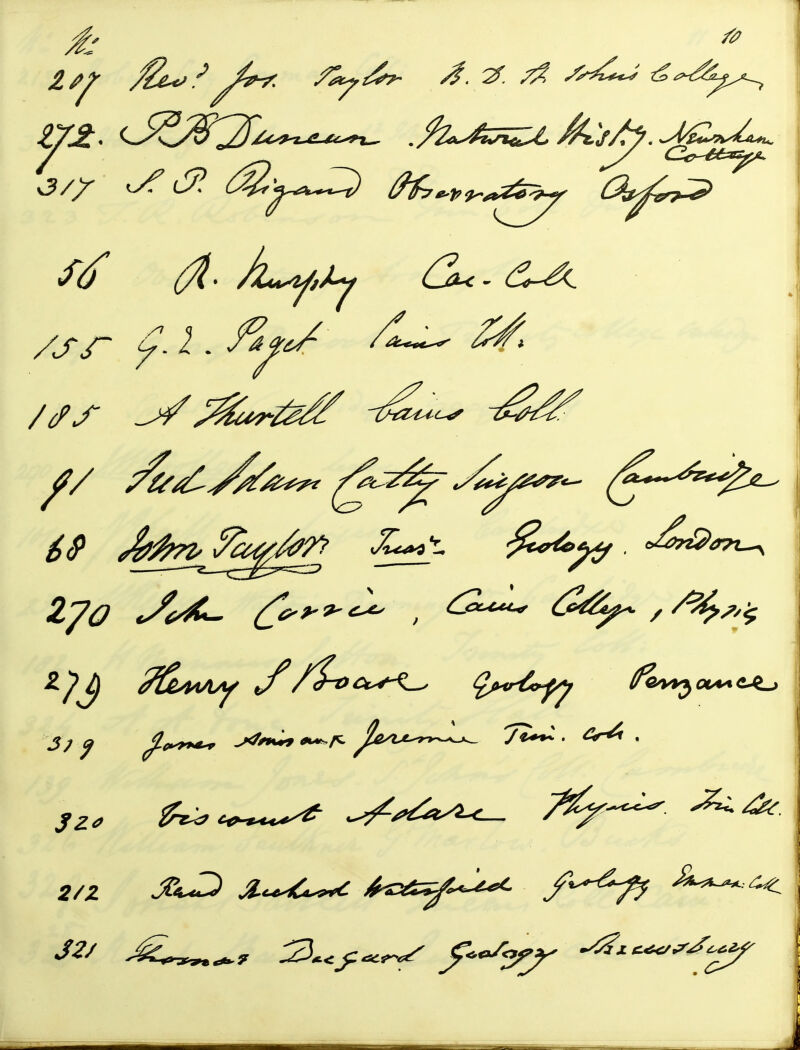 No. 10
207 Revd. Jos. Taylor B. D. St Johns College
272. P B Duncan . Natural Histy. Newnham
Cottage
317 S. P. Rigaud Observatory Oxford
56 R. Murphy Cai- Coll
155 G. E. Paget Caius Coll.
185 A Thurtell Caius Coll.
91 Fred Adam Catty Surgeon Cambridge
68 John Taylor Treasr. Geology. London
270 John Corrie, Caius College, Physic
279 Henry S Boase Geology Penzance
319 James Amiraux Jeremie Trin. Coll.
320 Viscount Adare Physics. Trin Coll.
212 Revd Richard Waterfield Geology Emman: Coll
321 Thomas Du Gard Geology Shrewsbury